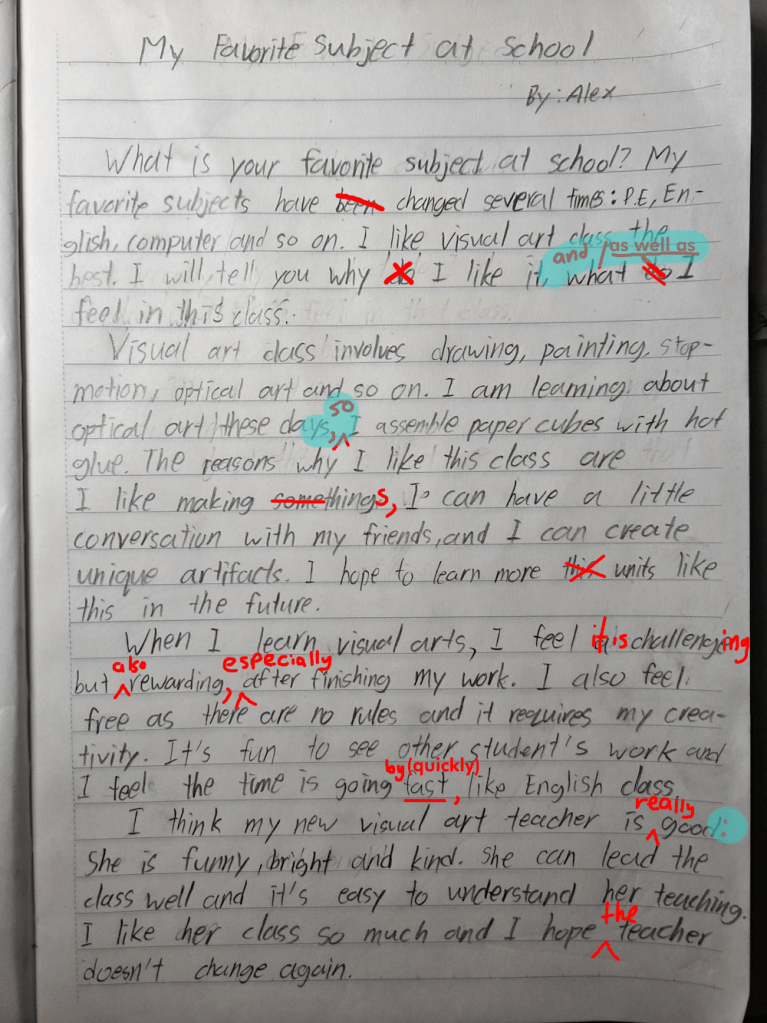 My Favorite Subject at School
By: Alex
What is your favorite subject at school? My
favorite subjects have been changed several times: P.E, En-
glish, computer and so on. I like visual art class the
and / as well as
best. I will tell you why I like it, what do I
feel in this class.
Visual art class involves drawing, painting, stop-
motion, optical art and so on. I am learning about
so
optical art these days, I assemble paper cubes with hot
glue. The reasons why I like this class are
I like making somethings, I can have a little
conversation with my friends, and I can create
unique artifacts. I hope to learn more this units like
this in the future.
When I learn visual arts, I feel it is challenging
also especially
but rewarding, after finishing my work. I also feel
free as there are no rules and it requires my crea-
tivity. It's fun to see other student's work and
by (quickly)
I feel the time is going fast, like English class
really
I think my new visual art teacher is good:
She is funny, bright and kind. She can lead the
class well and it's easy to understand her teaching.
the
I like her class so much and I hope teacher
doesn't change again.